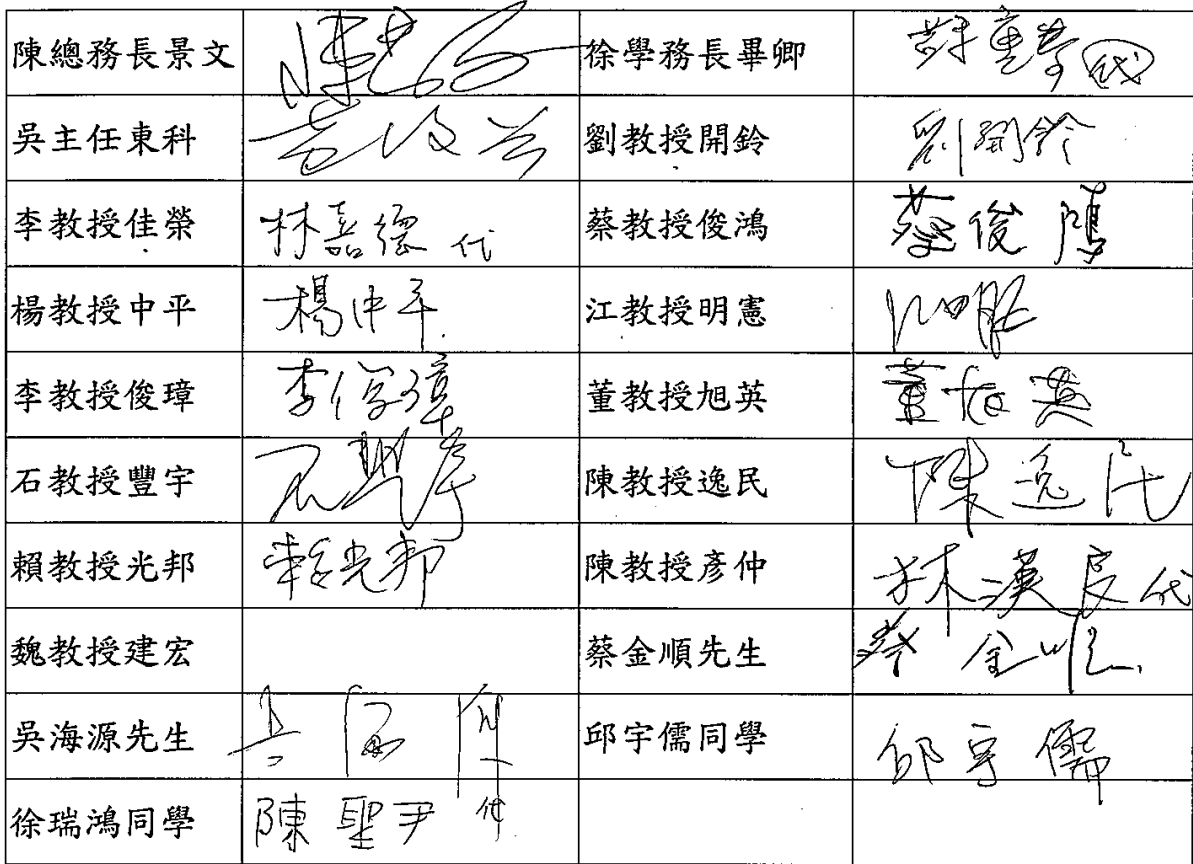 陳總務長景文 徐學務長畢卿 代
吳主任東科 劉教授開鈴 劉開鈴
李教授佳榮 林嘉德 代 蔡教授俊鴻 蔡俊鴻
楊教授中平 楊中平 江教授明憲
李教授俊璋 李俊璋 董教授旭英 董旭英
石教授豐宇 陳教授逸民 陳逸民
賴教授光邦 賴光邦 陳教授彥仲 林漢良代
魏教授建宏 蔡金順先生 蔡金順
吳海源先生 吳海源 邱宇儒同學 邱宇儒
徐瑞鴻同學 陳聖尹 代